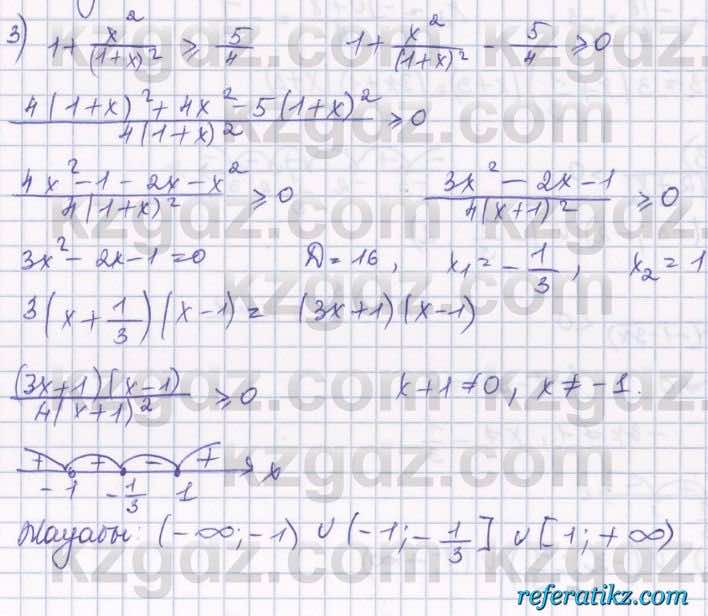 3) 1 + x²/(1+x)² ⩾ 5/4 1 + x²/(1+x)² - 5/4 ⩾ 0
(4(1+x)² + 4x² - 5(1+x)²)/(4(1+x)²) ⩾ 0
(4x² - 1 - 2x - x²)/(4(1+x)²) ⩾ 0 (3x² - 2x - 1)/(4(x+1)²) ⩾ 0
3x² - 2x - 1 = 0 D = 16, x₁ = -1/3, x₂ = 1
3(x + 1/3)(x - 1) = (3x+1)(x-1)
((3x+1)(x-1))/(4(x+1)²) ⩾ 0 x+1 ≠ 0, x ≠ -1.
+ + - + x
-1 -1/3 1
Жауабы: (-∞; -1) ∪ (-1; -1/3] ∪ [1; +∞)
kzgdz.com
referatikz.com